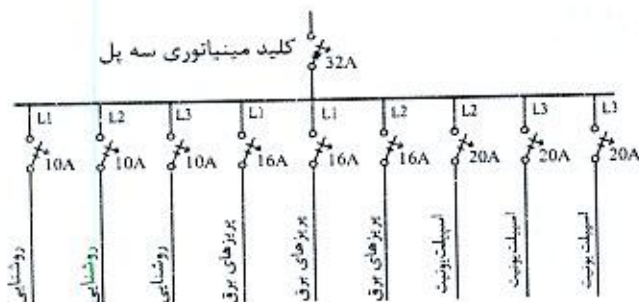 کلید مینیاتوری سه پل
32A
L1 L2 L3 L1 L1 L2 L2 L3 L3
10A 10A 10A 16A 16A 16A 20A 20A 20A
روشنایی
روشنایی
روشنایی
پریزهای برق
پریزهای برق
پریزهای برق
اسپیلت یونیت
اسپیلت یونیت
اسپیلت یونیت